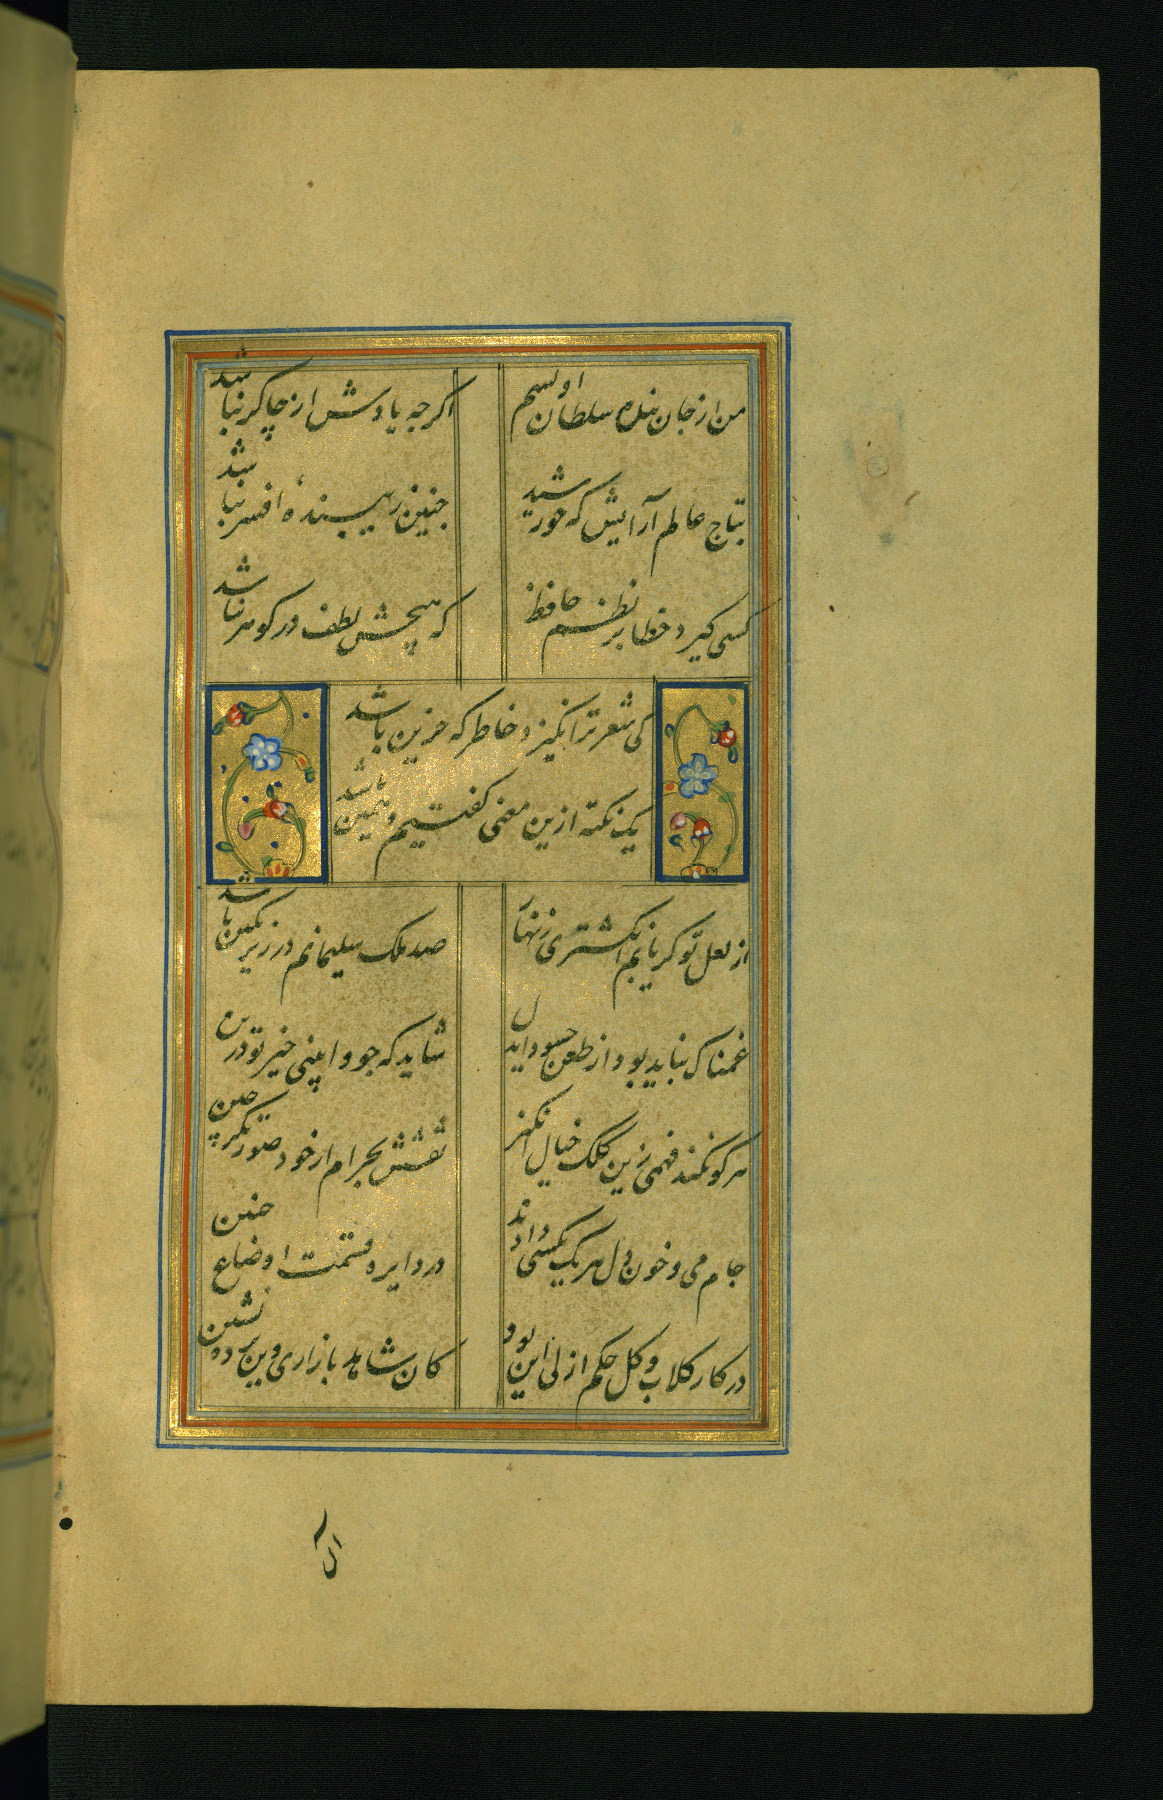 من از جان بنده سلطان اویسم اگرچه یادش از چاکر نباشد
بتاج عالم آرایش که خورشید چنین زیبنده افسر نباشد
کسی گیرد خطا بر نظم حافظ که هیچش لطف در گوهر نباشد
کی شعر تر انگیزد خاطر که حزین باشد
یک نکته ازین معنی گفتیم و همین باشد
از لعل تو گر یابم انگشتری زنهار صد ملک سلیمانم در زیر نگین باشد
غمناک نباید بود از طعن حسود ایدل شاید که چو وابینی خیر تو درین
هر کو نکند فهمی زین کلک خیال انگیز نقشش بحرام ار خود صورتگر چین
جام می و خون دل هر یک بکسی دادند در دایره قسمت اوضاع چنین
در کار گلاب و گل حکم ازلی این بود کان شاهد بازاری وین پرده نشین